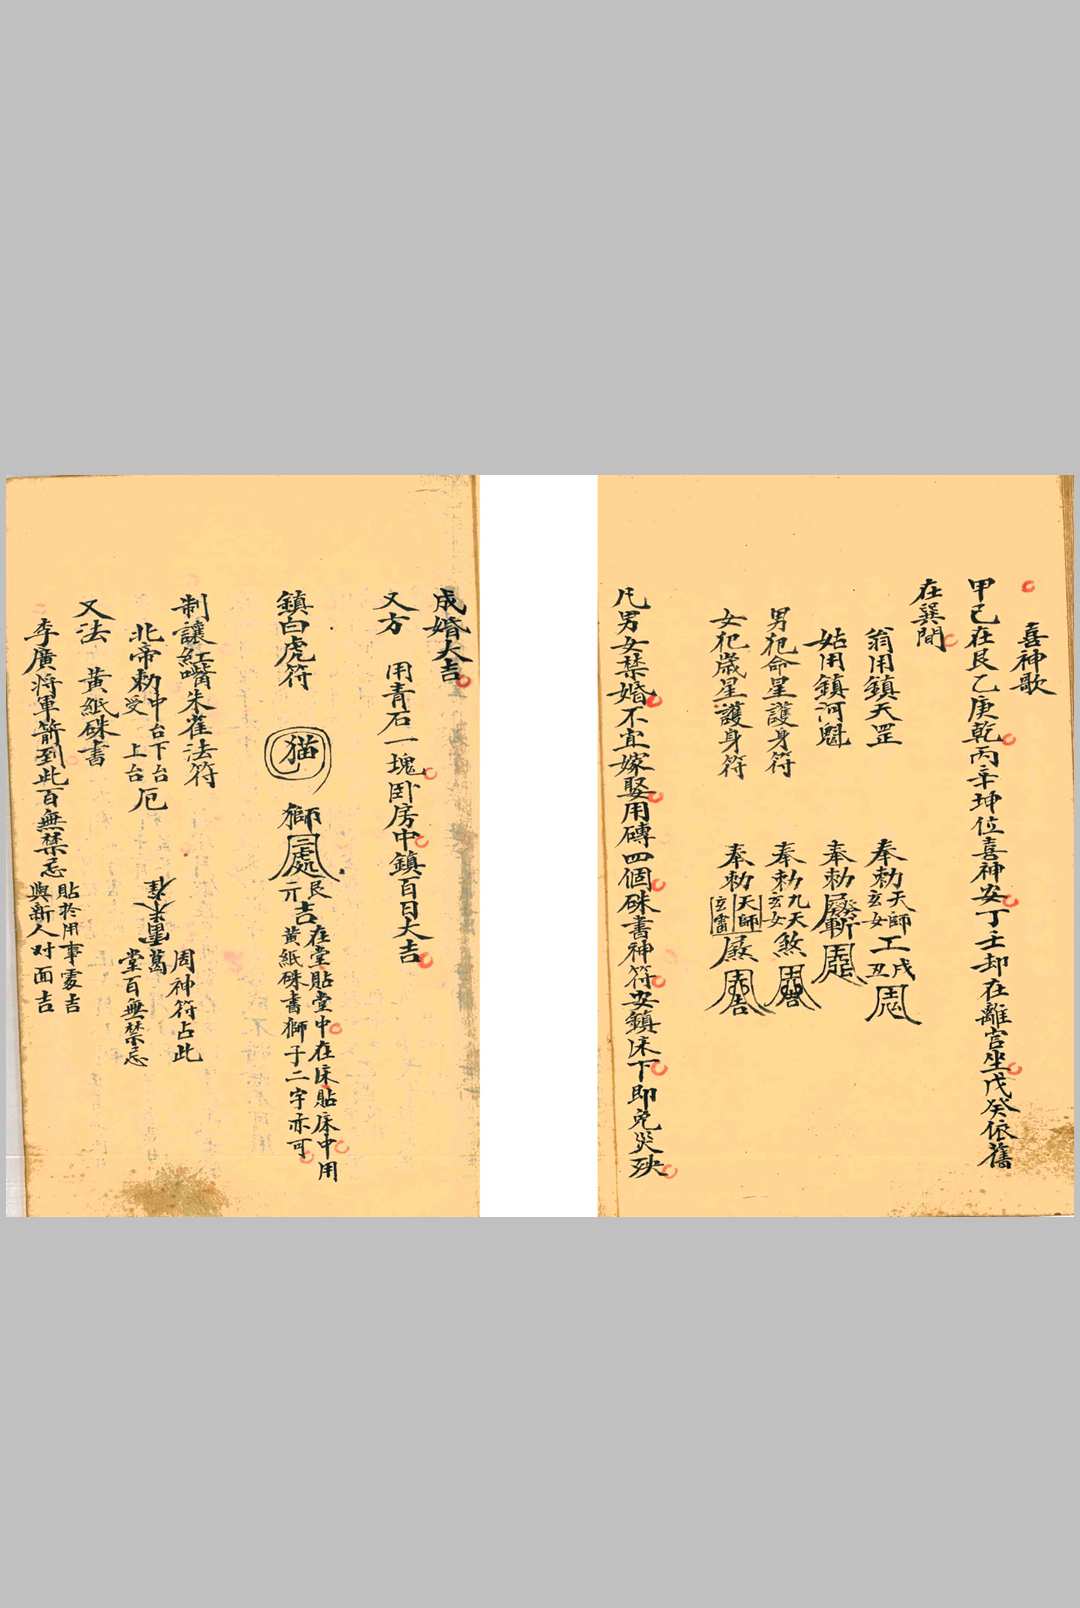 喜神歌
甲己在艮乙庚乾丙辛坤位喜神安丁壬却在離宮坐戊癸依舊
在巽間
翁用鎮天罡 奉勅天師玄女
姑用鎮河魁 奉勅
男犯命星護身符 奉勅九天玄女煞
女犯歲星護身符 奉勅天師
凡男女禁婚不宜嫁娶用磚四個硃書神符安鎮床下即免災殃
成婚大吉
又方 用青石一塊卧房中鎮百日大吉
鎮白虎符 猫 獅 吉在堂貼堂中在床貼床中用
黃紙硃書獅子二字亦可
制讓紅嘴朱雀法符 周神符占此
北帝勅受中台下台上台 堂百無禁忌
又法 黃紙硃書
李廣将軍箭到此百無禁忌 貼於用事處吉
與新人对面吉